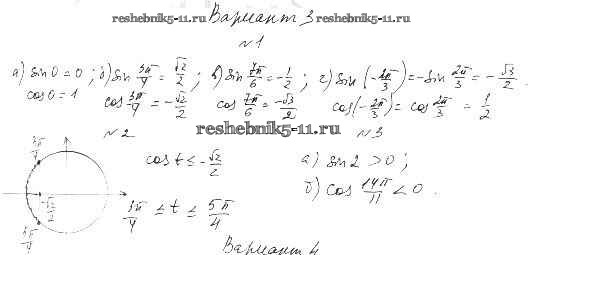 reshebnik5-11.ru Вариант 3 reshebnik5-11.ru
№1
а) sin 0 = 0; б) sin 3π/4 = √2/2; в) sin 7π/6 = -1/2; г) sin(-2π/3) = -sin 2π/3 = -√3/2.
cos 0 = 1 cos 3π/4 = -√2/2 cos 7π/6 = -√3/2 cos(-2π/3) = cos 2π/3 = 1/2
reshebnik5-11.ru
№2 №3
3π/4
cos t ≤ -√2/2 а) sin 2 > 0;
б) cos 14π/11 < 0.
-√2/2
3π/4 ≤ t ≤ 5π/4
5π/4
Вариант 4